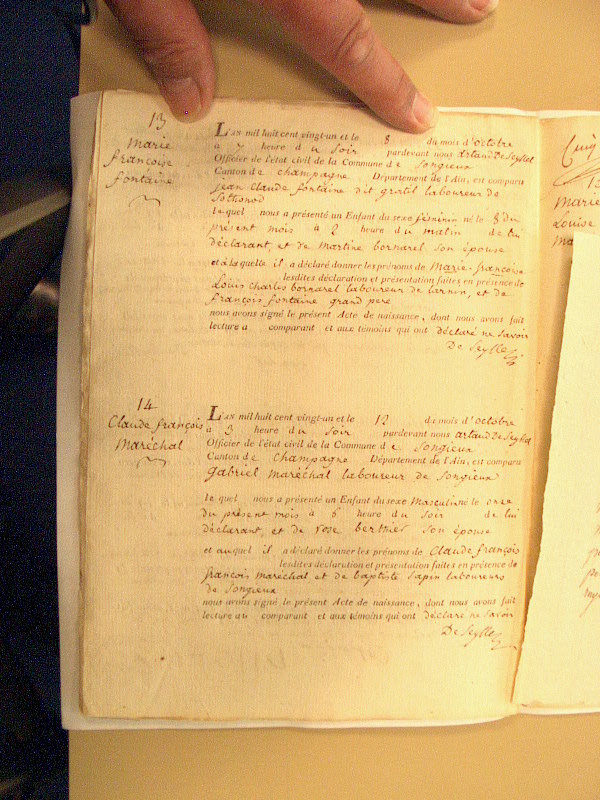 13
Marie
françoise
fontaine
L'an mil huit cent vingt-un et le 8 du mois d'octobre
à 7 heure du soir pardevant nous artaud De Seyssel
Officier de l'état civil de la Commune de Songieux
Canton de champagne Département de l'Ain, est comparu
jean Claude fontaine dit gratil laboureur de
Sothonod
lequel nous a présenté un Enfant du sexe féminin né le 8 du
présent mois à 2 heure du matin de lui
déclarant, et de martine bornarel son épouse
et à laquelle il a déclaré donner les prénoms de Marie-françoise
lesdites déclaration et présentation faites en présence de
Louis Charles bornarel laboureur de et de
françois fontaine grand pere
nous avons signé le présent Acte de naissance, dont nous avons fait
lecture a comparant et aux témoins qui ont déclaré ne savoir
De Seyssel
14
Claude françois
Maréchal
L'an mil huit cent vingt-un et le 12 du mois d'octobre
à 3 heure du soir pardevant nous artaud De Seyssel
Officier de l'état civil de la Commune de Songieux
Canton de Champagne Département de l'Ain, est comparu
gabriel maréchal laboureur de Songieux
lequel nous a présenté un Enfant du sexe Masculin né le onze
du présent mois à 6 heure du soir de lui
déclarant, et de rose berthier son épouse
et auquel il a déclaré donner les prénoms de Claude françois
lesdites déclaration et présentation faites en présence de
françois maréchal et de baptiste sapin laboureurs
de Songieux
nous avons signé le présent Acte de naissance, dont nous avons fait
lecture au comparant et aux témoins qui ont déclaré ne savoir
De Seyssel
Marie
Louise